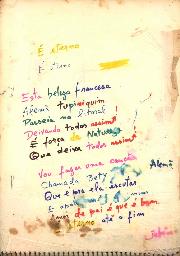 É eterno
É terno
Esta beleza francesa
Alemã tupiniquim
Passeia no litoral!
Deixando todos assim!
É força da Natureza
Que deixa todos assim!
Vou fazer uma canção
Chamada Bety Alemã
Que é pra ela escutar
E
amor de pai é que é bom
terno até o fim